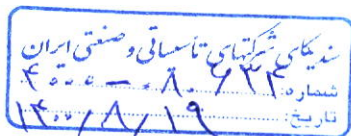 سندیکای شرکتهای تاسیساتی و صنعتی ایران
شماره: ۴۰۰۰-۰۸۰/۳۴
تاریخ: ۱۴۰۰/۸/۱۹